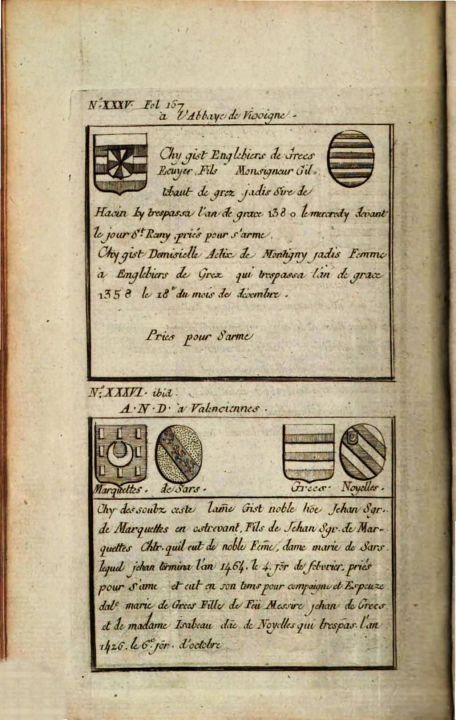 N.º XXXV. Fol 167
à l'Abbaye de Vicoigne.
Chy gist Englebiers de Grees
Ecuyer, Fils Monsigneur Gil-
lebaut de grez jadis Sire de
Hacin ky trespassa l'an de grace 1380 le mercredy devant
le jour S.t Remy, priés pour s'arme.
Chy gist Demisielle Aelix de Montigny jadis Femme
à Englebiers de Grez qui trespassa l'an de grace
1358 le 18.e du mois de décembre.
Pries pour S'arme
N.º XXXVI. ibid.
A. N. D. à Valenciennes.
Marquettes. de Sars. Grees. Noyelles.
Chy dessoubz ceste lame Gist noble hõe Jehan Sgr.
de Marquettes en ostrevant, Fils de Jehan Sgr. de Mar-
quettes Chlr. quil eut de noble Feme, dame marie de Sars
lequel jehan termina l'an 1464. le 4. jõr de febvrier. priés
pour S'ame et eut en son tems pour compaigne et Espeuze
dal.e marie de Grees Fille de Feu Messire jehan de Grees
et de madame Isabeau dãe de Noyelles qui trespas. l'an
1426. le 6.e jõr. d'octobre